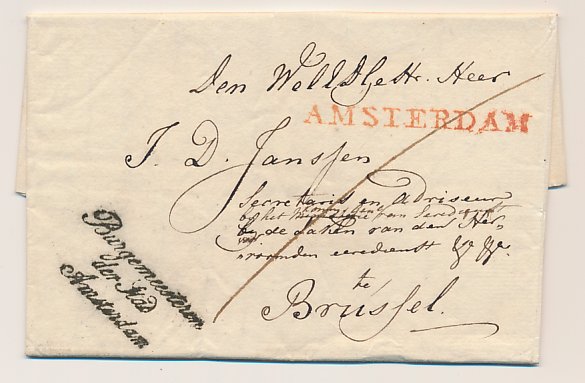 Den WelEdGeStr. Heer
AMSTERDAM
J. D. Janssen
Secretaris en Adviseur
bij het van
bij de zaken van den Her-
vormden eeredienst &c &c.
te
Brussel.
Burgemeesteren
der Stad
Amsterdam